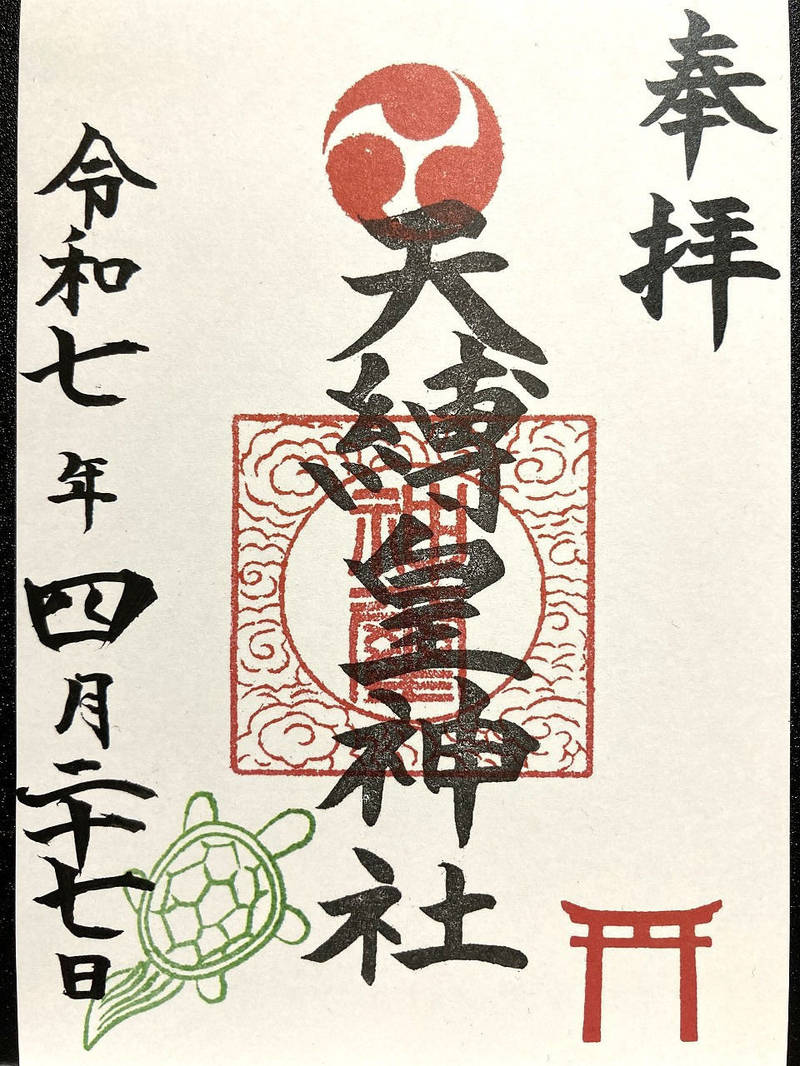 奉拝
天縛皇神社
令和七年四月二十七日